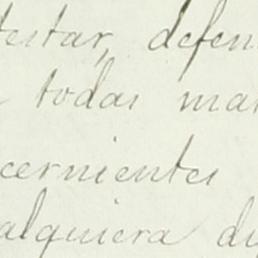 testar, defen
todas mar
cernientes
alquiera di